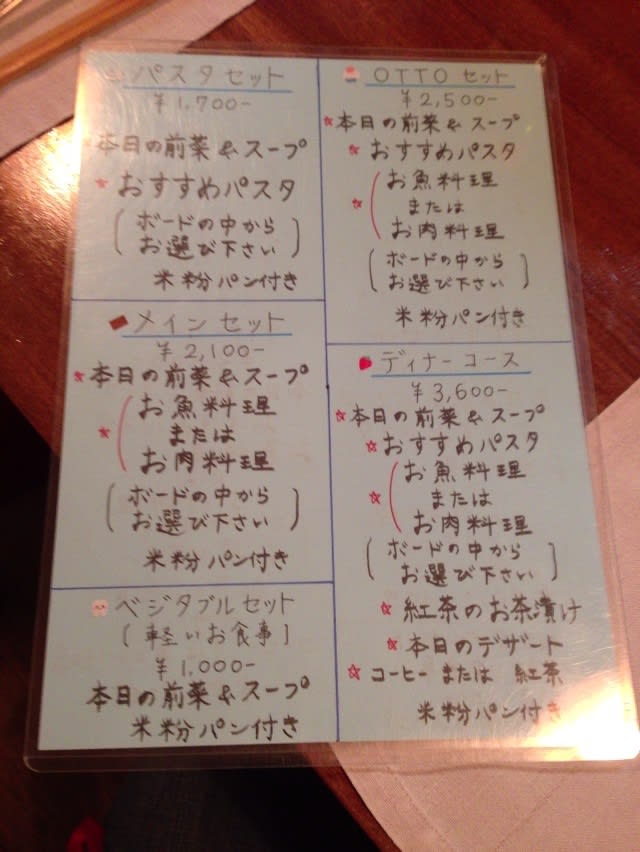 パスタセット
¥1,700-
本日の前菜&スープ
★おすすめパスタ
(ボードの中から
お選び下さい)
米粉パン付き
メインセット
¥2,100-
★本日の前菜&スープ
★(お魚料理
または
お肉料理
(ボードの中から
お選び下さい)
米粉パン付き
ベジタブルセット
[軽いお食事]
¥1,000-
本日の前菜&スープ
米粉パン付き
OTTOセット
¥2,500-
★本日の前菜&スープ
★おすすめパスタ
★(お魚料理
または
お肉料理
(ボードの中から
お選び下さい)
米粉パン付き
ディナーコース
¥3,600-
★本日の前菜&スープ
★おすすめパスタ
☆(お魚料理
または
お肉料理
(ボードの中から
お選び下さい)
★紅茶のお茶漬け
★本日のデザート
☆コーヒーまたは 紅茶
米粉パン付き